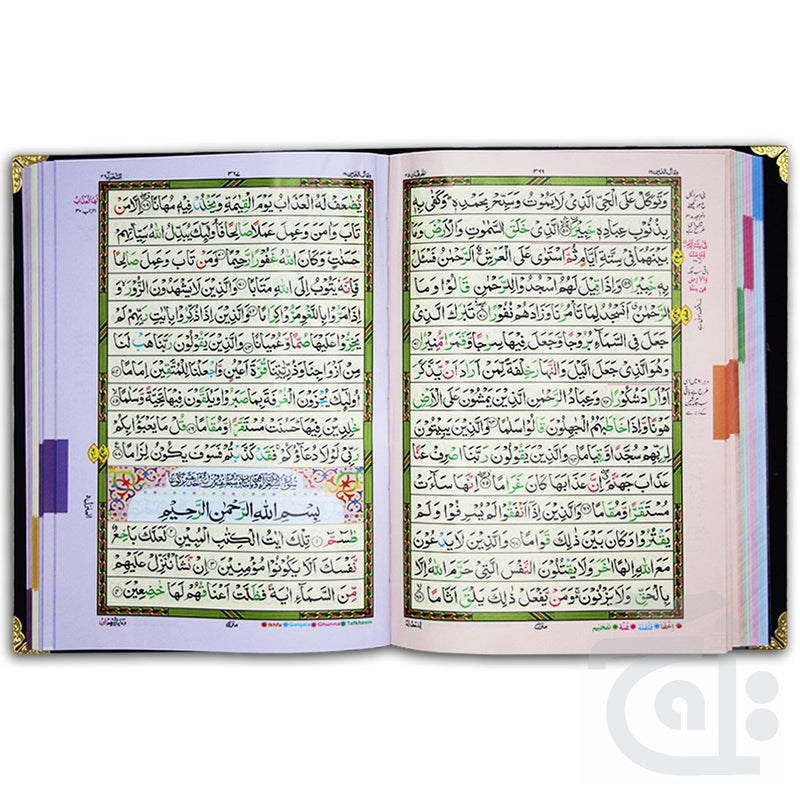 وقال الذين ١٩
٣٦٦
الفرقان ٢٥
وَتَوَكَّلْ عَلَى الْحَيِّ الَّذِي لَا يَمُوتُ وَسَبِّحْ بِحَمْدِهٖ ؕ وَكَفٰى بِهٖ
بِذُنُوْبِ عِبَادِهٖ خَبِيْرًا ۛۙ الَّذِيْ خَلَقَ السَّمٰوٰتِ وَالْاَرْضَ وَمَا
بَيْنَهُمَا فِيْ سِتَّةِ اَيَّامٍ ثُمَّ اسْتَوٰى عَلَى الْعَرْشِ ۛۚ اَلرَّحْمٰنُ فَسْـَٔلْ
بِهٖ خَبِيْرًا وَاِذَا قِيْلَ لَهُمُ اسْجُدُوْا لِلرَّحْمٰنِ قَالُوْا وَمَا
الرَّحْمٰنُ ٗ اَنَسْجُدُ لِمَا تَاْمُرُنَا وَزَادَهُمْ نُفُوْرًا تَبٰرَكَ الَّذِيْ
جَعَلَ فِي السَّمَآءِ بُرُوْجًا وَّجَعَلَ فِيْهَا سِرٰجًا وَّقَمَرًا مُّنِيْرًا
وَهُوَ الَّذِيْ جَعَلَ الَّيْلَ وَالنَّهَارَ خِلْفَةً لِّمَنْ اَرَادَ اَنْ يَّذَّكَّرَ
اَوْ اَرَادَ شُكُوْرًا وَعِبَادُ الرَّحْمٰنِ الَّذِيْنَ يَمْشُوْنَ عَلَى الْاَرْضِ
هَوْنًا وَّاِذَا خَاطَبَهُمُ الْجٰهِلُوْنَ قَالُوْا سَلٰمًا وَالَّذِيْنَ يَبِيْتُوْنَ
لِرَبِّهِمْ سُجَّدًا وَّقِيَامًا وَالَّذِيْنَ يَقُوْلُوْنَ رَبَّنَا اصْرِفْ عَنَّا
عَذَابَ جَهَنَّمَ ۖ اِنَّ عَذَابَهَا كَانَ غَرَامًا اِنَّهَا سَآءَتْ
مُسْتَقَرًّا وَّمُقَامًا وَالَّذِيْنَ اِذَآ اَنْفَقُوْا لَمْ يُسْرِفُوْا وَلَمْ
يَقْتُرُوْا وَكَانَ بَيْنَ ذٰلِكَ قَوَامًا وَالَّذِيْنَ لَا يَدْعُوْنَ
مَعَ اللّٰهِ اِلٰهًا اٰخَرَ وَلَا يَقْتُلُوْنَ النَّفْسَ الَّتِيْ حَرَّمَ اللّٰهُ اِلَّا
بِالْحَقِّ وَلَا يَزْنُوْنَ ۚ وَمَنْ يَّفْعَلْ ذٰلِكَ يَلْقَ اَثَامًا
منزل ٤
اِخْفَا قَلْقَلَة غُنَّة تَفْخِيم
وقال الذين ١٩
٣٦٧
الشعراء ٢٦
يُّضٰعَفْ لَهُ الْعَذَابُ يَوْمَ الْقِيٰمَةِ وَيَخْلُدْ فِيْهٖ مُهَانًا اِلَّا مَنْ
تَابَ وَاٰمَنَ وَعَمِلَ عَمَلًا صَالِحًا فَاُولٰٓئِكَ يُبَدِّلُ اللّٰهُ سَيِّاٰتِهِمْ
حَسَنٰتٍ ؕ وَكَانَ اللّٰهُ غَفُوْرًا رَّحِيْمًا وَمَنْ تَابَ وَعَمِلَ صَالِحًا
فَاِنَّهٗ يَتُوْبُ اِلَى اللّٰهِ مَتَابًا وَالَّذِيْنَ لَا يَشْهَدُوْنَ الزُّوْرَ ۙ وَ
اِذَا مَرُّوْا بِاللَّغْوِ مَرُّوْا كِرَامًا وَالَّذِيْنَ اِذَا ذُكِّرُوْا بِاٰيٰتِ رَبِّهِمْ لَمْ
يَخِرُّوْا عَلَيْهَا صُمًّا وَّعُمْيَانًا وَالَّذِيْنَ يَقُوْلُوْنَ رَبَّنَا هَبْ لَنَا
مِنْ اَزْوَاجِنَا وَذُرِّيّٰتِنَا قُرَّةَ اَعْيُنٍ وَّاجْعَلْنَا لِلْمُتَّقِيْنَ اِمَامًا
اُولٰٓئِكَ يُجْزَوْنَ الْغُرْفَةَ بِمَا صَبَرُوْا وَيُلَقَّوْنَ فِيْهَا تَحِيَّةً وَّسَلٰمًا
خٰلِدِيْنَ فِيْهَا ؕ حَسُنَتْ مُسْتَقَرًّا وَّمُقَامًا قُلْ مَا يَعْبَؤُا بِكُمْ
رَبِّيْ لَوْلَا دُعَآؤُكُمْ ۚ فَقَدْ كَذَّبْتُمْ فَسَوْفَ يَكُوْنُ لِزَامًا
بِسْمِ اللّٰهِ الرَّحْمٰنِ الرَّحِيْمِ
طٰسٓمّٓ ١ تِلْكَ اٰيٰتُ الْكِتٰبِ الْمُبِيْنِ ٢ لَعَلَّكَ بَاخِعٌ
نَّفْسَكَ اَلَّا يَكُوْنُوْا مُؤْمِنِيْنَ ٣ اِنْ نَّشَاْ نُنَزِّلْ عَلَيْهِمْ
مِّنَ السَّمَآءِ اٰيَةً فَظَلَّتْ اَعْنَاقُهُمْ لَهَا خٰضِعِيْنَ ٤
Ikhfa Qalqala Ghunna Tafkheem